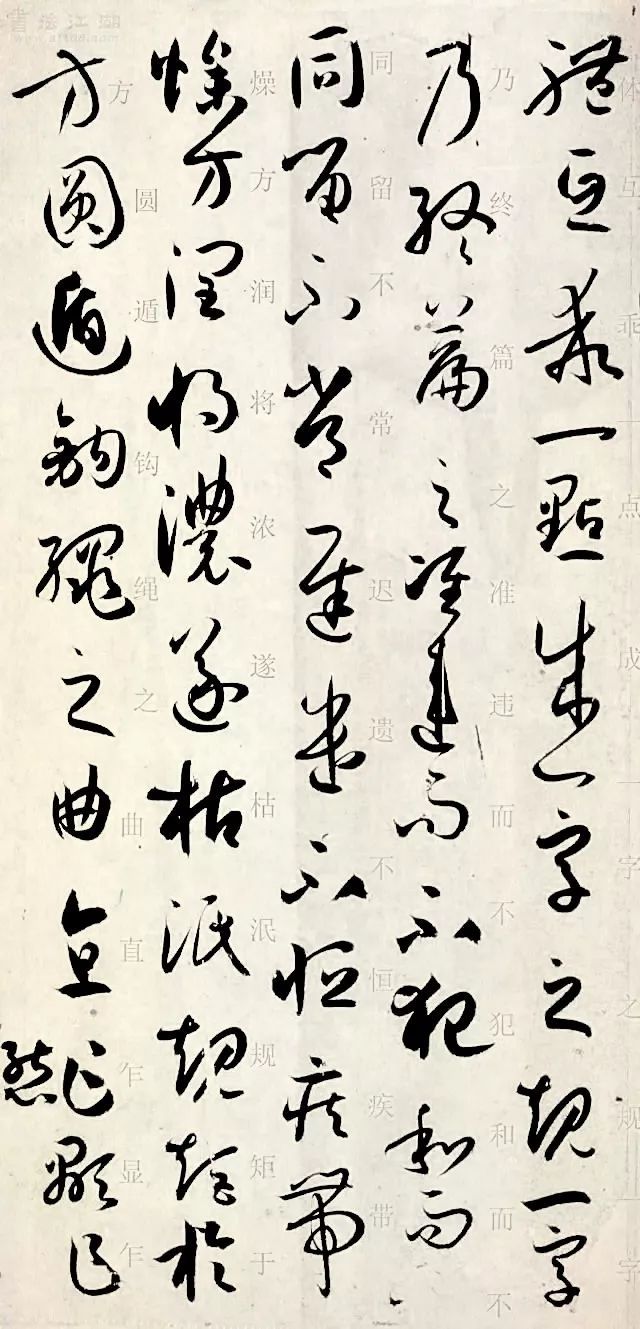 體互乖一點成一字之規一字
体互乖一点成一字之规一字
乃終篇之准違而不犯和而
乃终篇之准违而不犯和而不
同留不常遲遣不恒疾帶
同留不常迟遗不恒疾带
燥方潤將濃遂枯泯規矩於
燥方润将浓遂枯泯规矩于
方圓遁鉤繩之曲直乍顯乍
方圆遁钩绳之曲直乍显乍
書法江湖